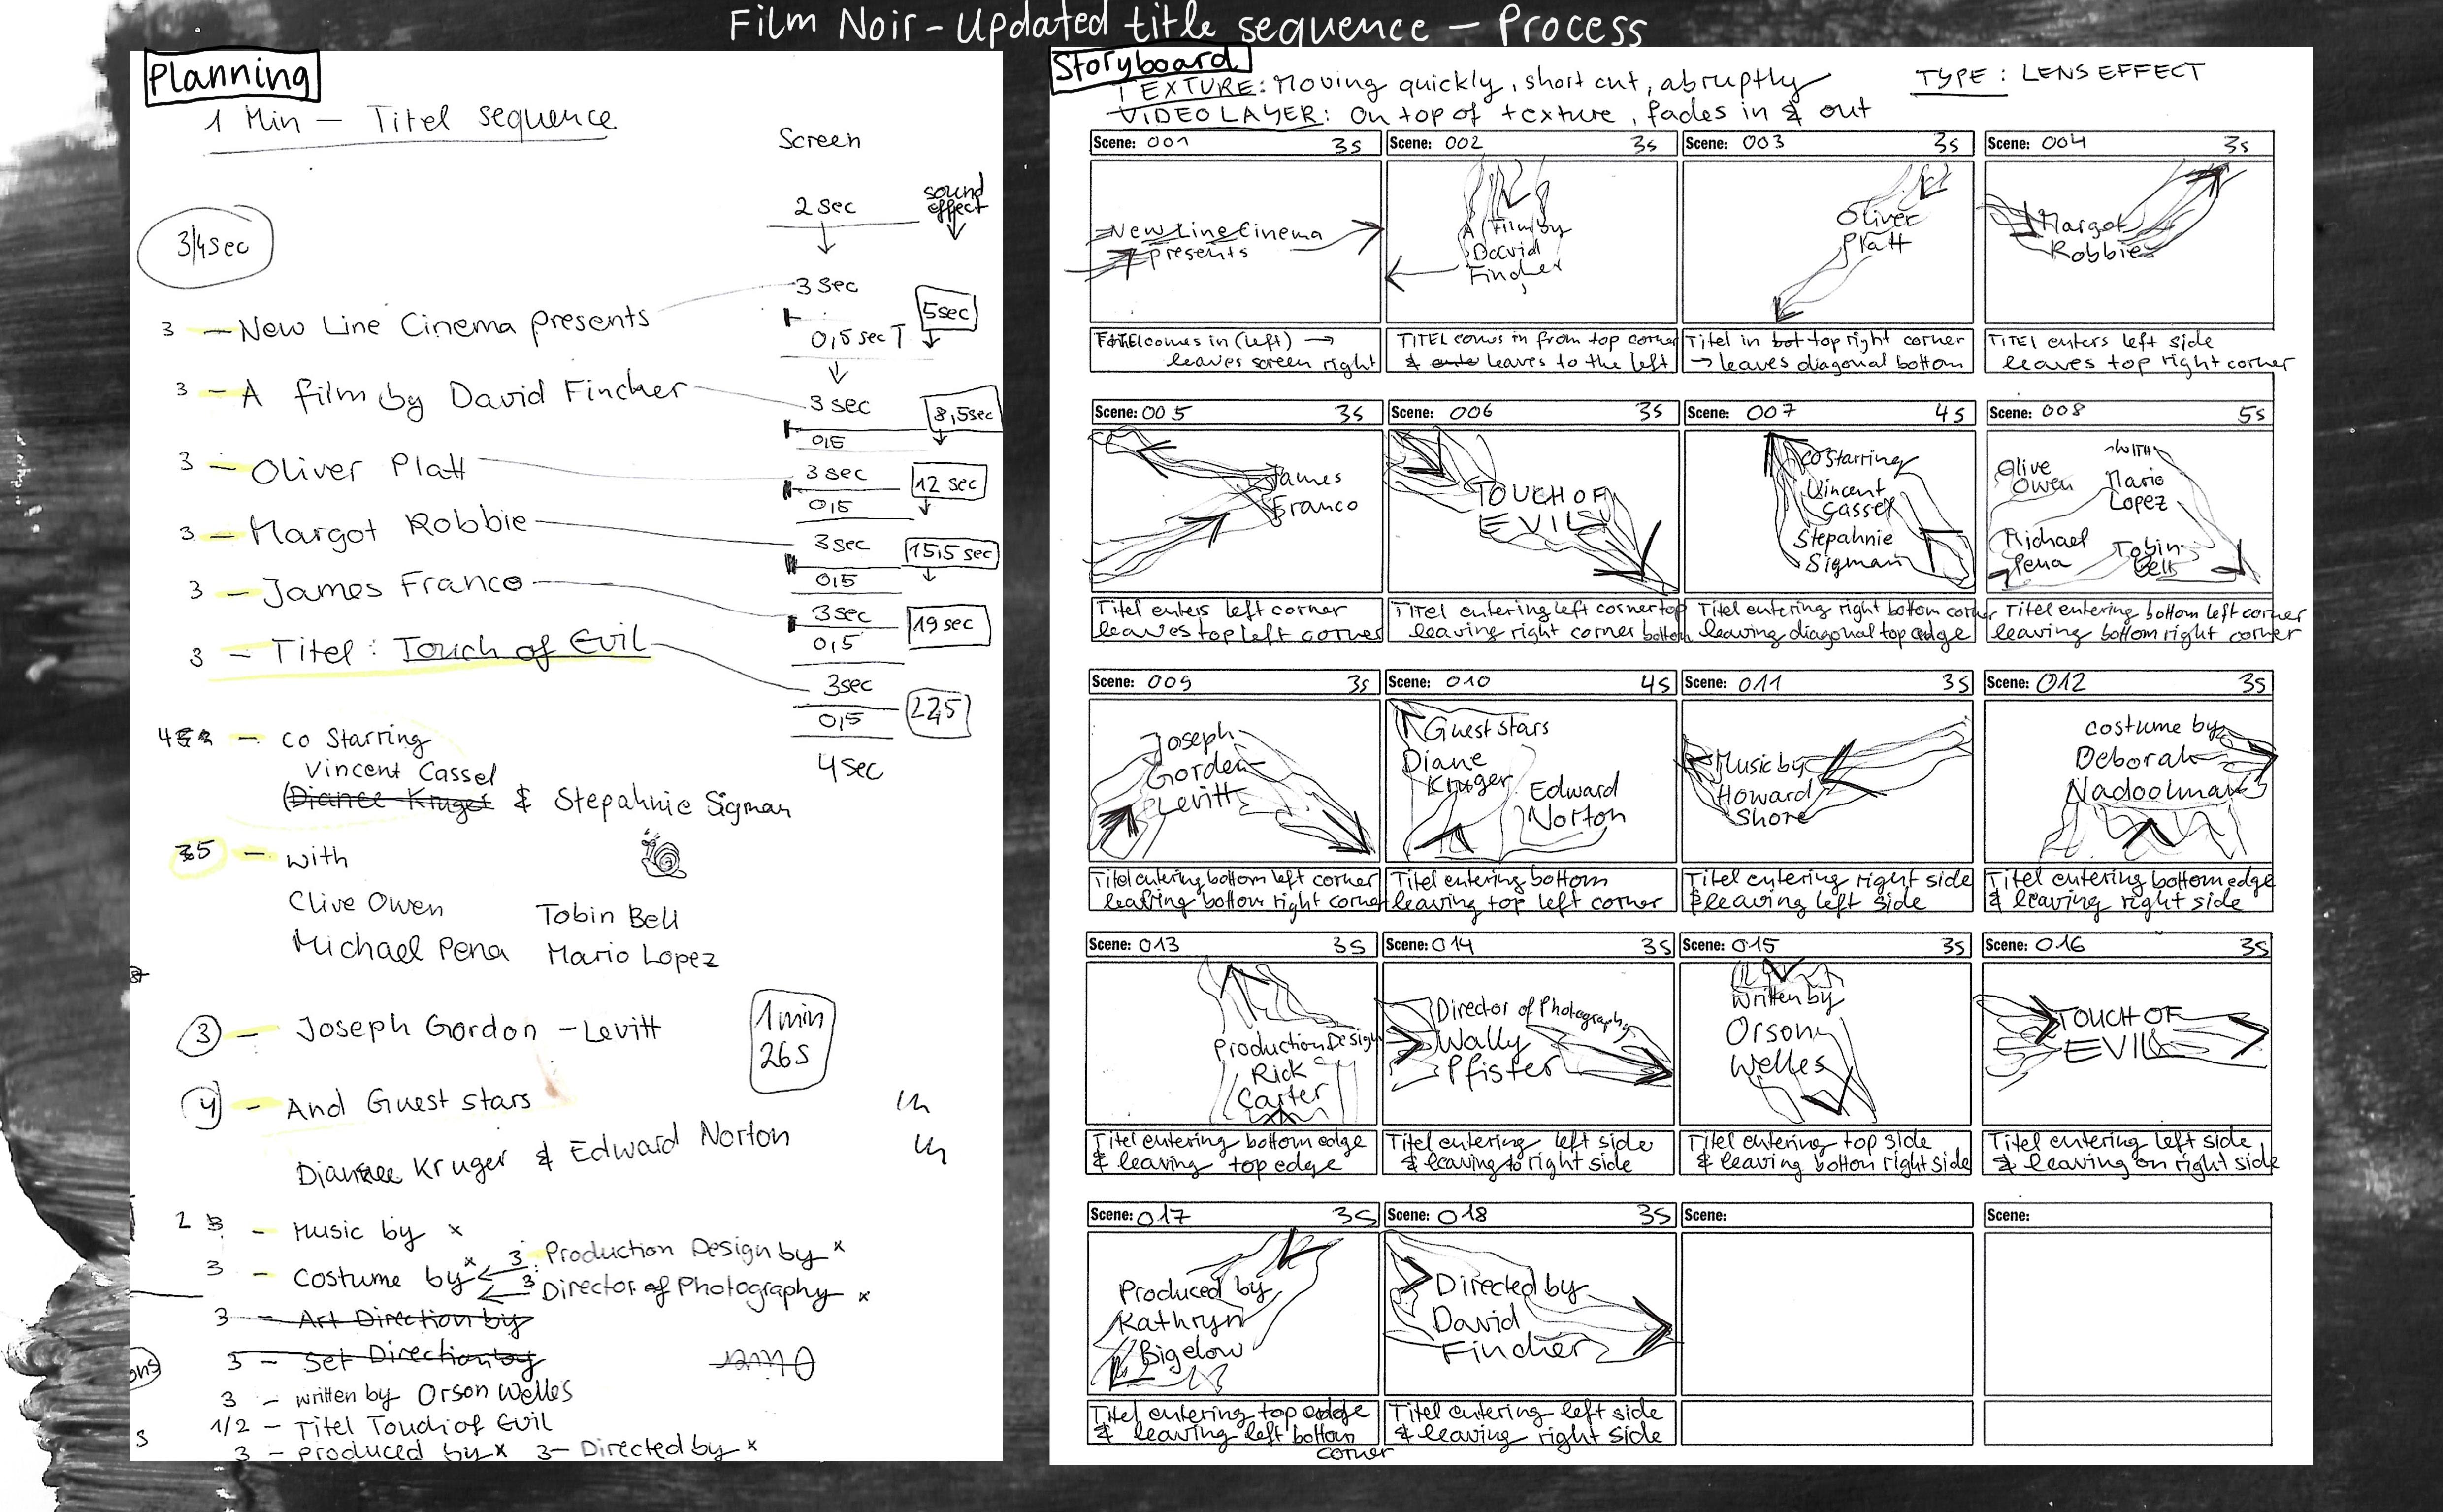 Film Noir - Updated title sequence - Process
Planning
1 Min - Titel sequence
Screen
sound
effect
2 sec
3/4sec
3 sec
5sec
3 - New Line Cinema presents
0,5 sec T
3 - A film by David Fincher
3 sec
8,5sec
0,5
3 - Oliver Platt
3 sec
12 sec
0,5
3 - Margot Robbie
3sec
15,5 sec
0,5
3 - James Franco
3sec
19 sec
3 - Titel: Touch of Evil
0,5
3sec
22,5
0,5
4 - co Starring
4sec
Vincent Cassel
(Diance Kruger & Stepahnie Sigman
35 - with
Clive Owen
Tobin Bell
Michael Pena
Mario Lopez
3 - Joseph Gordon - Levitt
1min
26s
4 - And Guest stars
Diane Kruger & Edward Norton
2 3 - Music by x
3 - Costume by x
3 Production Design by x
3 Director of Photography x
3 - Art Direction by
3 - Set Direction by
3 - written by Orson Welles
1/2 - Titel Touch of Evil
3 - produced by x 3 - Directed by x
Storyboard
TEXTURE: Moving quickly, short cut, abruptly
TYPE: LENS EFFECT
VIDEO LAYER: On top of texture, fades in & out
Scene: 001 3s
New Line Cinema
presents
comes in (left) →
leaves screen right
Scene: 002 3s
A Film by
David
Fincher
TITEL comes in from top corner
& leaves to the left
Scene: 003 3s
Oliver
Platt
Titel in bot top right corner
→ leaves diagonal bottom
Scene: 004 3s
Margot
Robbie
TITEL enters left side
leaves top right corner
Scene: 005 3s
James
Franco
Titel enters left corner
leaves top left corner
Scene: 006 3s
TOUCH OF
EVIL
TITEL entering left corner top
leaving right corner bottom
Scene: 007 4s
Co Starring
Vincent
Cassel
Stepahnie
Sigman
Titel entering right bottom corner
leaving diagonal top edge
Scene: 008 5s
WITH
Clive
Owen
Mario
Lopez
Michael
Pena
Tobin
Bell
Titel entering bottom left corner
leaving bottom right corner
Scene: 009 3s
Joseph
Gorden-
Levitt
Titel entering bottom left corner
leaving bottom right corner
Scene: 010 4s
Guest stars
Diane
Kruger
Edward
Norton
Titel entering bottom
leaving top left corner
Scene: 011 3s
Music by
Howard
Shore
Titel entering right side
& leaving left side
Scene: 012 3s
costume by
Deborah
Nadoolman
Titel entering bottom edge
& leaving right side
Scene: 013 3s
Production Design
Rick
Carter
Titel entering bottom edge
& leaving top edge
Scene: 014 3s
Director of Photography
Wally
Pfister
Titel entering left side
& leaving to right side
Scene: 015 3s
Written by
Orson
Welles
Titel entering top side
& leaving bottom right side
Scene: 016 3s
TOUCH OF
EVIL
Titel entering left side
& leaving on right side
Scene: 017 3s
Produced by
Kathryn
Bigelow
Titel entering top edge
& leaving left bottom
corner
Scene: 018 3s
Directed by
David
Fincher
Titel entering left side
& leaving right side
Scene:
Scene: